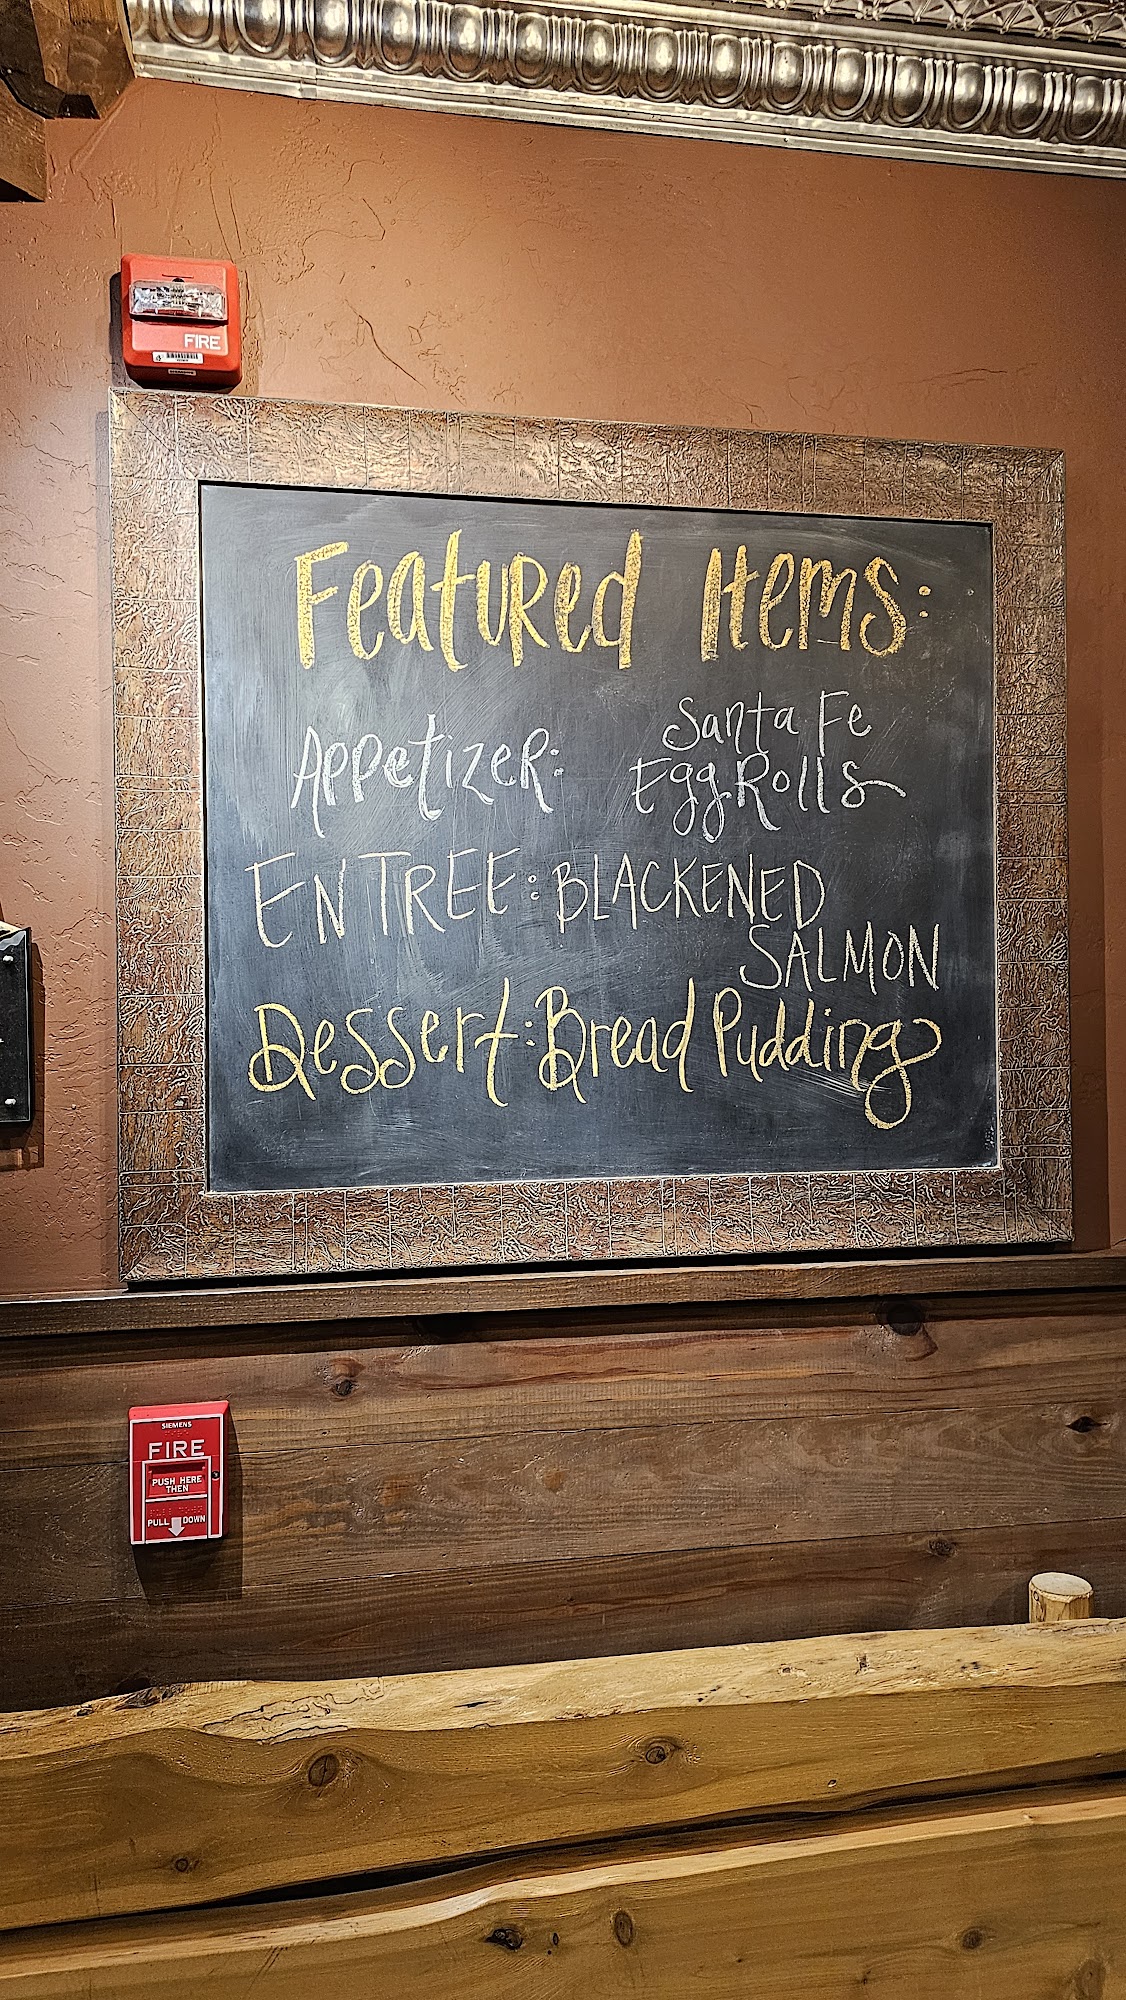 FIRE
Featured Items:
Appetizer: Santa Fe
Egg Rolls
ENTREE: BLACKENED
SALMON
Dessert: Bread Pudding
SIEMENS
FIRE
PUSH HERE
THEN
PULL DOWN